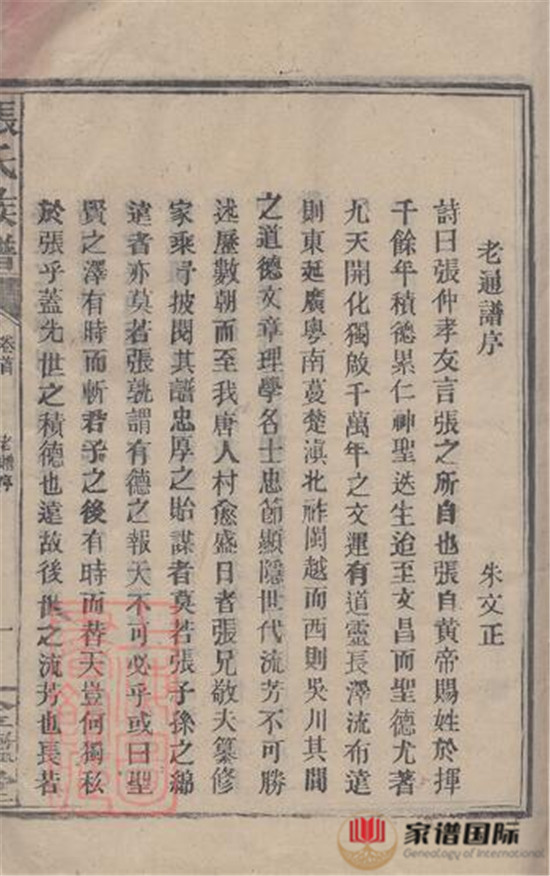 老通譜序
朱文正
詩曰張仲孝友言張之所自也張自黃帝賜姓於揮
千餘年積德累仁神聖迭生迨至文昌而聖德尤著
九天開化獨啟千萬年之文運有道靈長澤流布遠
則東延廣粤南蔓楚滇北祚閩越而西則吳川其間
之道德文章理學名士忠節顯隱世代流芳不可勝
述歷數朝而至我唐人村愈盛日者張兄敬夫纂修
家乘予披閱其譜忠厚之貽謀者莫若張子孫之綿
遠者亦莫若張孰謂有德之報天不可必乎或曰聖
賢之澤有時而斬君子之後有時而替天豈何獨私
於張乎蓋先世之積德也遠故後世之流芳也長若
張氏族譜
卷首
老譜序
一
家谱国际
Genealogy of International